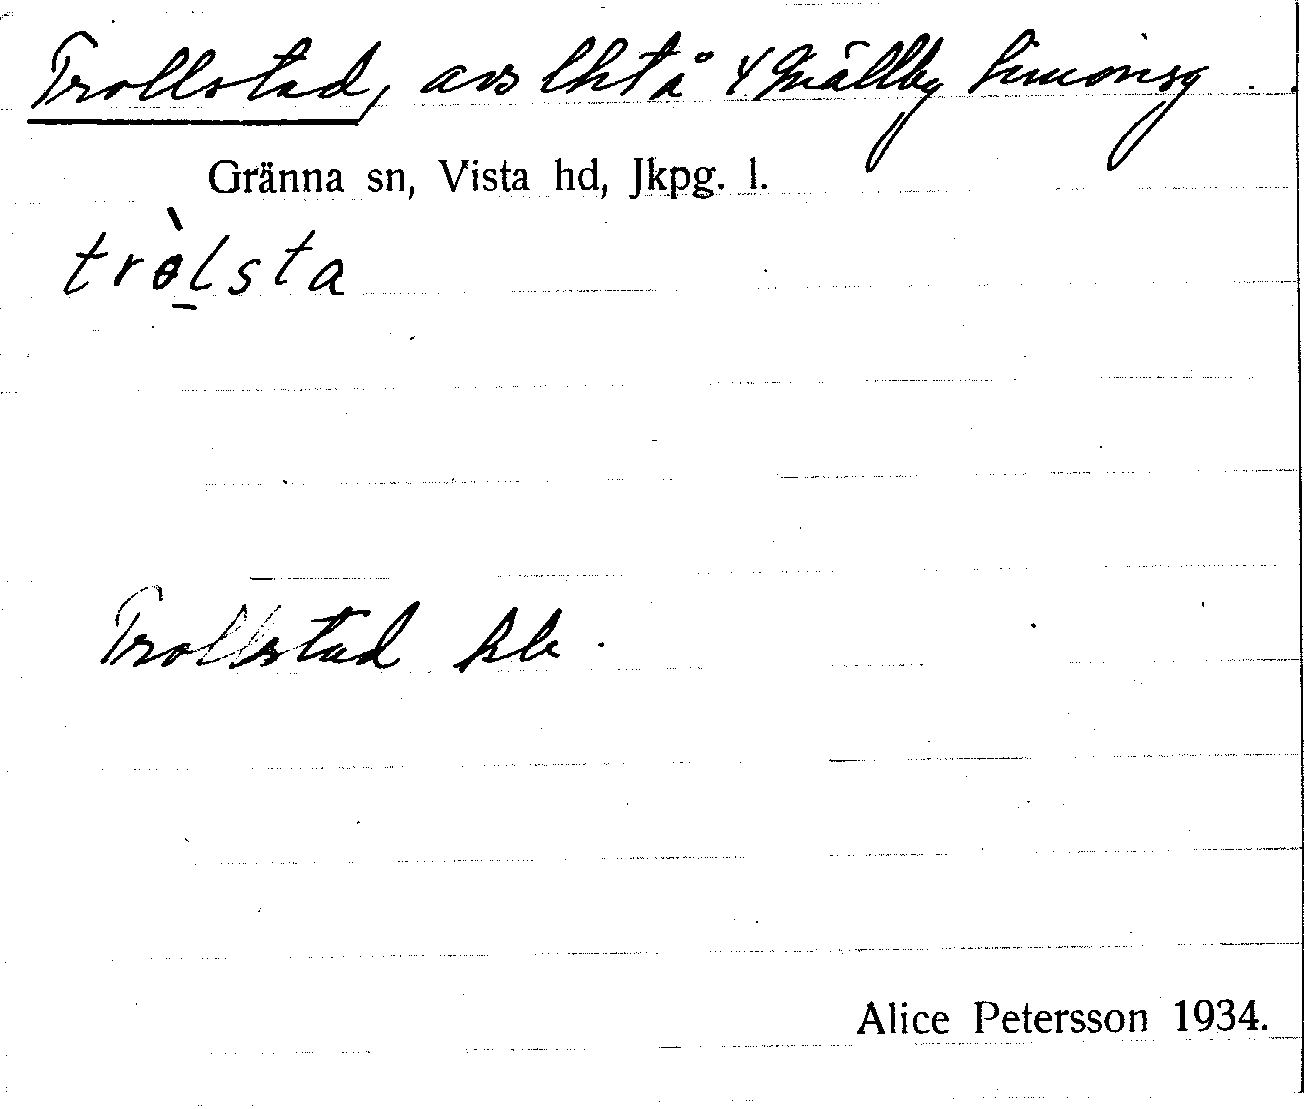 Trollstad, avs lht å 4 Mällby Simonsg.
Gränna sn, Vista hd, Jkpg. l.
trò̱lsta
Trollstad kb.
Alice Petersson 1934.